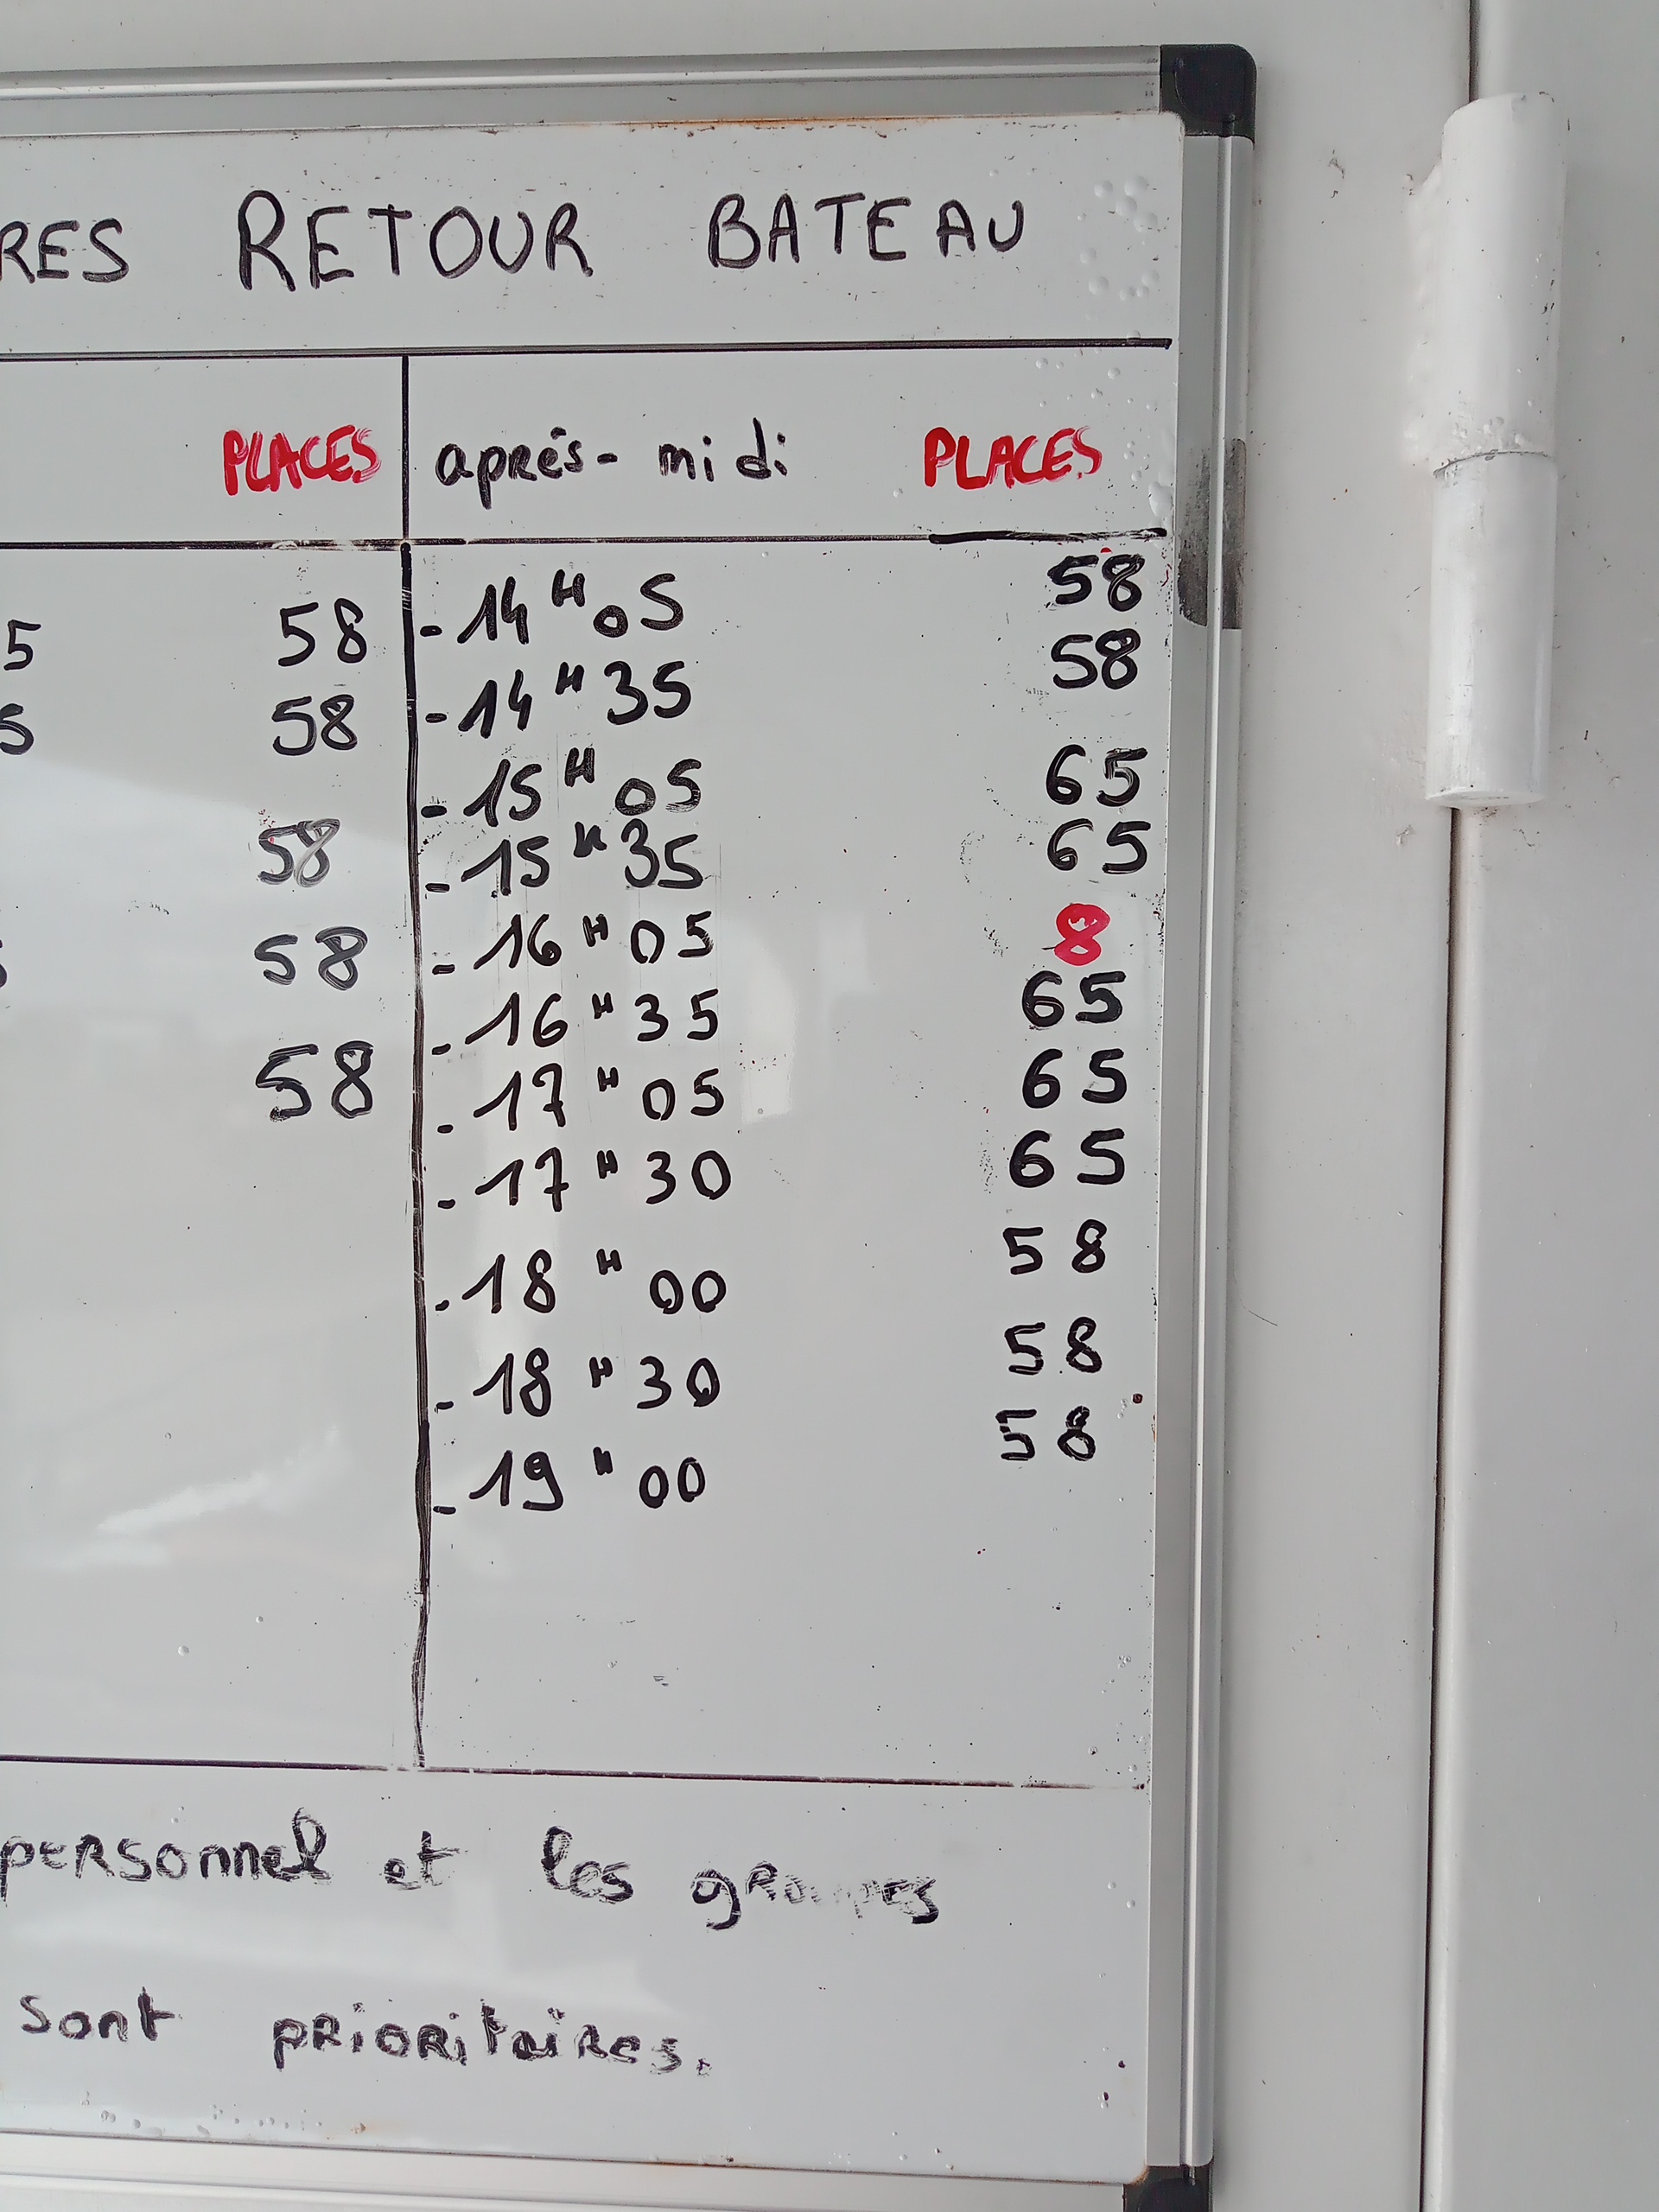 RES RETOUR BATEAU
PLACES après-midi PLACES
5 58 - 14H05 58
5 58 - 14H35 58
- 15H05 65
58 - 15H35 65
58 - 16H05 8
- 16H35 65
58 - 17H05 65
- 17H30 65
- 18H00 58
- 18H30 58
- 19H00 58
personnel et les groupes
sont prioritaires.